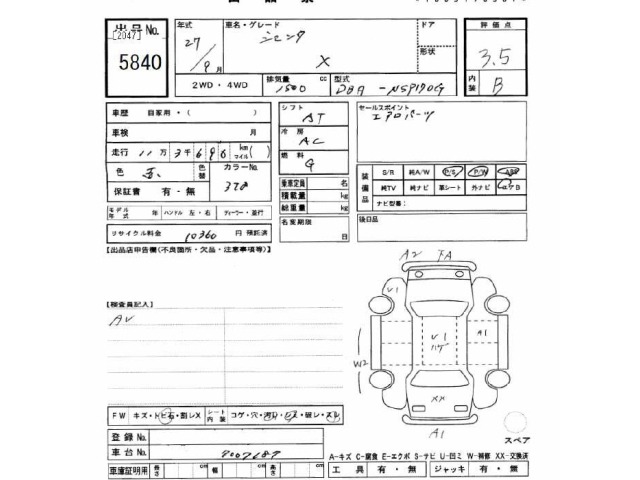 出品号 No.
[2047]
5840
年式 27/9月
車名・グレード シエンタ X
ドア
形状
評価点 3.5
内装 B
2WD・4WD
排気量 1500 cc
型式 DBA-NSP170G
車歴 自家用・( )
車検 月
走行 11万3千696 km マイル( )
色
色替
カラーNo.
保証書 有・無
モデル年式 年 ハンドル 左・右 ディーラー・並行
リサイクル料金 10360 円 預託済
シフト AT
冷房 AC
燃料 G
乗車定員 名
積載量 kg
総重量 kg
名変期限 日
セールスポイント
エアロパーツ
装備品
S/R 純A/W P/S P/W ABS
純TV 純ナビ 革シート 外ナビ エアB
ナビ型番:
後日品
【出品店申告欄(不良箇所・欠品・注意事項等)】
【検査員記入】
AV
A2 FA
V1
V1
A1
W2
XX
A1
スペア
FW キズ・トビ石・割レX シート内装 コゲ・穴・汚レ・シミ・破レ・スレ
登録 No.
車台 No.
車庫証明用 長さ cm 幅 cm 高さ cm
A-キズ C-腐食 E-エクボ S-サビ U-凹ミ W-補修 XX-交換済
工具 有・無 ジャッキ 有・無